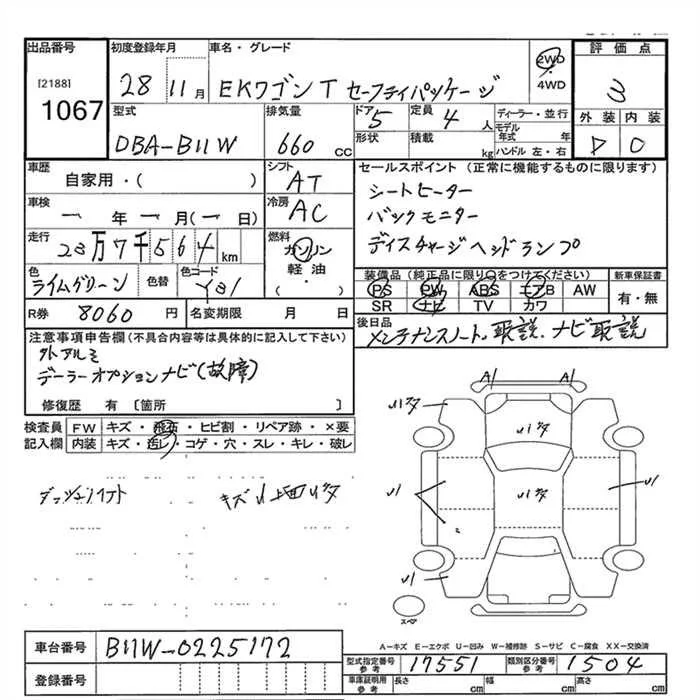 出品番号
[2188]
1067
初度登録年月
28 11月
車名・グレード
EKワゴンT セーフティパッケージ
2WD
・
4WD
評価点
3
外装 内装
D 0
型式
DBA-B11W
排気量
660 cc
ドア 5
形状
定員 4 人
積載 kg
ディーラー・並行
モデル年式 年
ハンドル 左・右
車歴
自家用・( )
シフト AT
車検
一 年 一 月(一 日)
冷房 AC
走行
23万7千564km
燃料
ガソリン
軽油
( ・ )
色
ライムグリーン
色替
色コード
R券 8060 円
名変期限 月 日
セールスポイント (正常に機能するものに限ります)
シートヒーター
バックモニター
ディスチャージヘッドランプ
装備品(純正品に限り○をつけてください)
PS PW ABS エアB AW
SR ナビ TV カワ
新車保証書
有・無
後日品
メンテナンスノート、取説、ナビ取説
注意事項申告欄(不具合内容等は具体的に記入して下さい)
外アルミ
デーラーオプションナビ(故障)
修復歴 有〔箇所 〕
検査員記入欄
FW キズ・飛石・ヒビ割・リペア跡・×要
内装 キズ・汚レ・コゲ・穴・スレ・キレ・破レ
キズU 上面Uヌタ
A1 A1
U1
U1
U1
スペア
A-キズ E-エクボ U-凹み W-補修跡 S-サビ C-腐食 XX-交換済
車台番号 B11W-0225172
登録番号
型式指定番号 参考 17551
類別区分番号 参考 1504
車庫証明用 参考 長さ cm 幅 cm 高さ cm